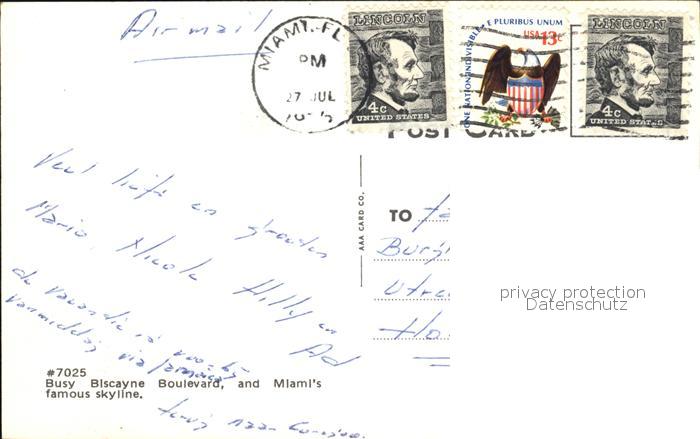 Air mail
MIAMI, FL
PM
27 JUL
LINCOLN
4c
UNITED STATES
E PLURIBUS UNUM
USA 13c
ONE NATION INDIVISIBLE
LINCOLN
4c
UNITED STATES
POST CARD
Veel liefs en groeten
Mario, Nicole Hilly en
Ad
de vacantie is
vanmiddag via Jamaica
terug naar
AAA CARD CO.
TO
Burg
Utre
Ho
privacy protection
Datenschutz
#7025
Busy Biscayne Boulevard, and Miami's
famous skyline.